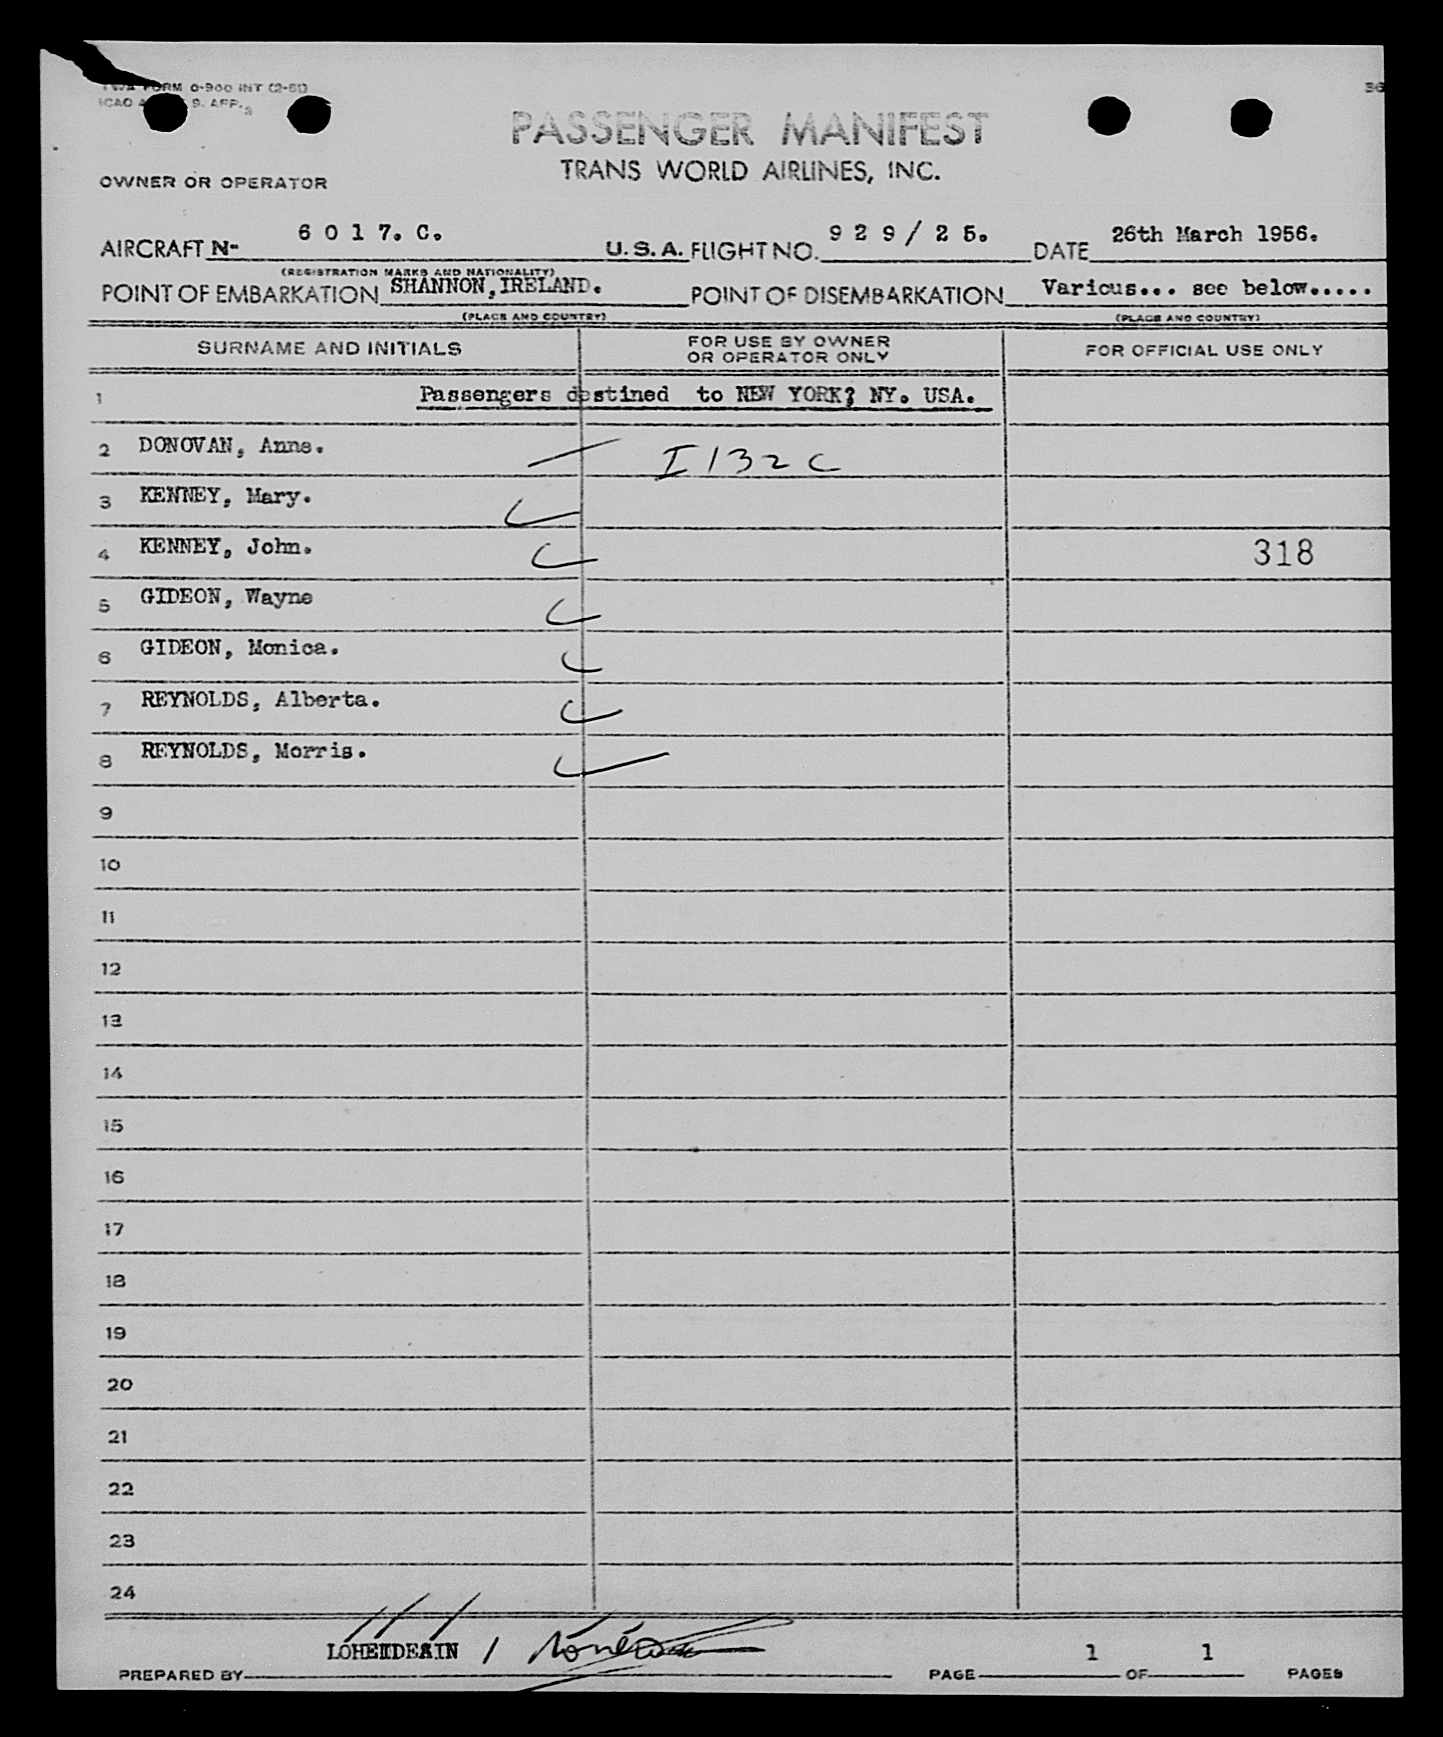 TWA FORM O-900 INT (2-51)
ICAO 9. APP. 3
36
PASSENGER MANIFEST
TRANS WORLD AIRLINES, INC.
OWNER OR OPERATOR
AIRCRAFT N- 6 0 1 7. C. U.S.A. FLIGHT NO. 9 2 9 / 2 5. DATE 26th March 1956.
(REGISTRATION MARKS AND NATIONALITY)
POINT OF EMBARKATION SHANNON, IRELAND. POINT OF DISEMBARKATION Various... see below.....
(PLACE AND COUNTRY) (PLACE AND COUNTRY)
SURNAME AND INITIALS FOR USE BY OWNER OR OPERATOR ONLY FOR OFFICIAL USE ONLY
1 Passengers destined to NEW YORK? NY. USA.
2 DONOVAN, Anne. I132C
3 KENNEY, Mary.
4 KENNEY, John. 318
5 GIDEON, Wayne
6 GIDEON, Monica.
7 REYNOLDS, Alberta.
8 REYNOLDS, Morris.
9
10
11
12
13
14
15
16
17
18
19
20
21
22
23
24
PREPARED BY PAGE 1 OF 1 PAGES